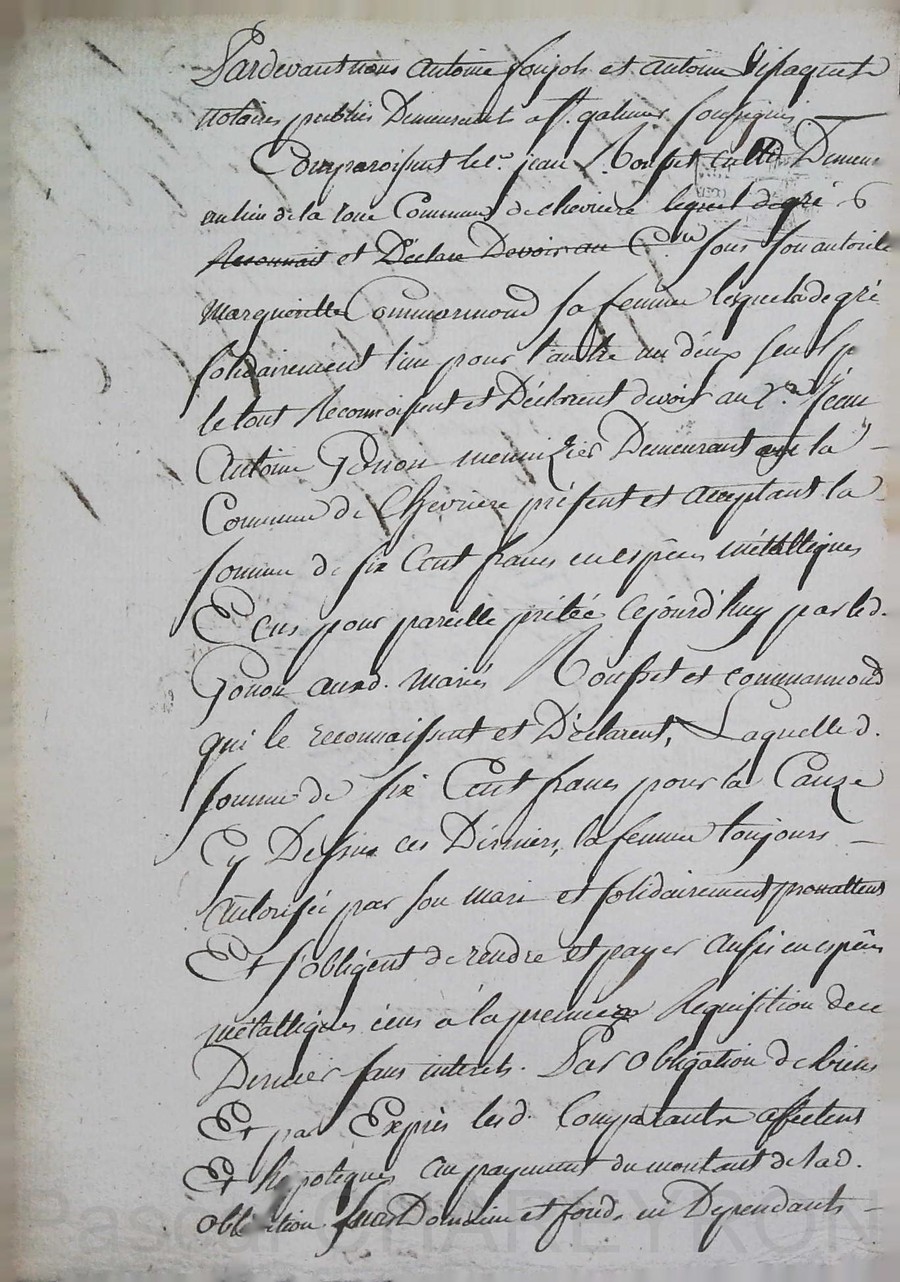 Pardevant nous antoine foujols et antoine
notaires publics Demeurants a St. galmier soussignés
Comparoissent le Cn. jean Rousset Demeu
au lieu de la roue Commune de chevriere lequel de gré
Reconnait et Déclare Devoir au Cen sous son autorité
margueritte Commarmond sa femme lesquels de gré
solidairement l'un pour l'autre un deux seul p
le tout Reconnoissent et Déclarent devoir au Jean
Antoine Gonon menuizier Demeurant la
Commune de Chevriere présent et acceptant la
somme de six Cent francs en espèces métalliques
Ecus pour pareille prêtée Cejourd'huy par led.
Gonon auxd. mariés Rousset et commarmond
qui le reconnaissent et Déclarent, Laquelle d.
somme de six Cent francs pour la Cauze
Cy Dessus ces Derniers, la femme toujours
autorisée par son mari et solidairement promettent
Et s'obligent de rendre et payer aussi en espèces
métalliques écus a la premiere Requisition de ce
Dernier sans interets. Par obligation de biens
Et par Exprès lesd. Comparants affectent
Et hypotequés au payement du montant de lad.
obligation leurs Domaine et fonds en Dependants
Pascal CHAREYRON